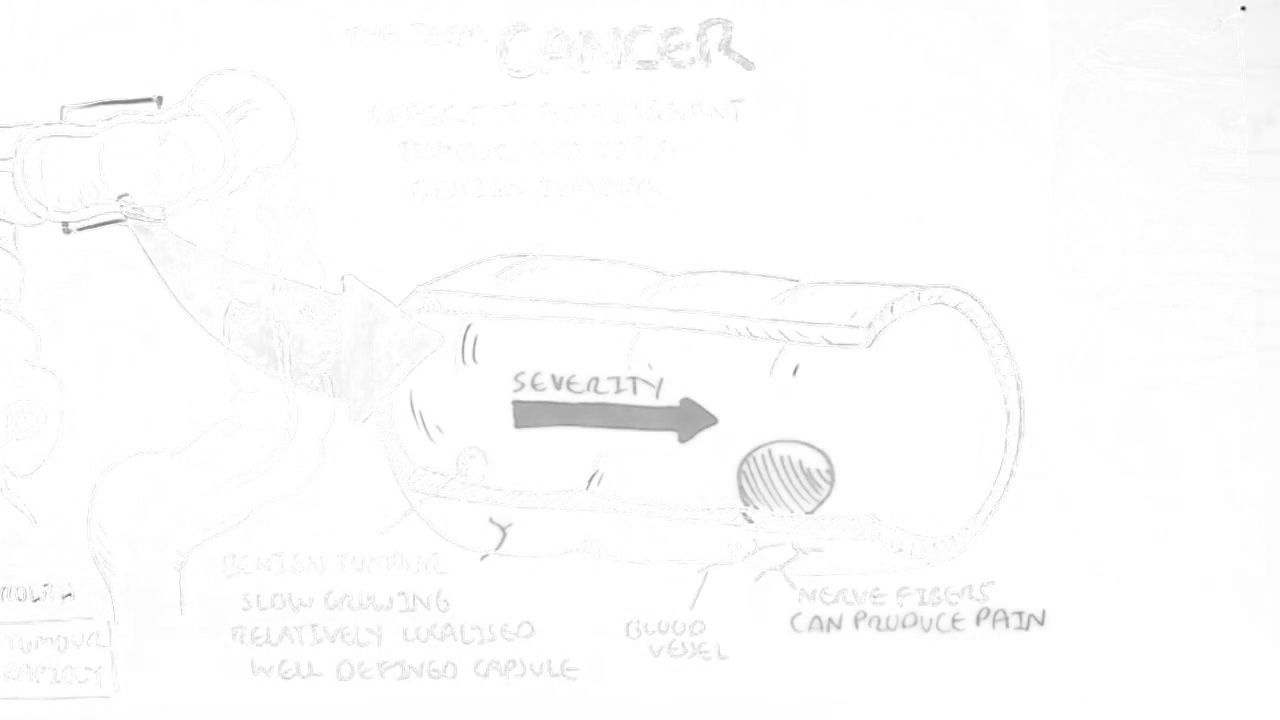 THE TERM CANCER
REFERS TO A MALIGNANT
TUMOUR, GROWTH
BENIGN TUMOUR
SEVERITY
BENIGN TUMOUR
SLOW GROWING
RELATIVELY LOCALISED
WELL DEFINED CAPSULE
BLOOD
VESSEL
NERVE FIBERS
CAN PRODUCE PAIN
TUMOUR
RAPIDLY